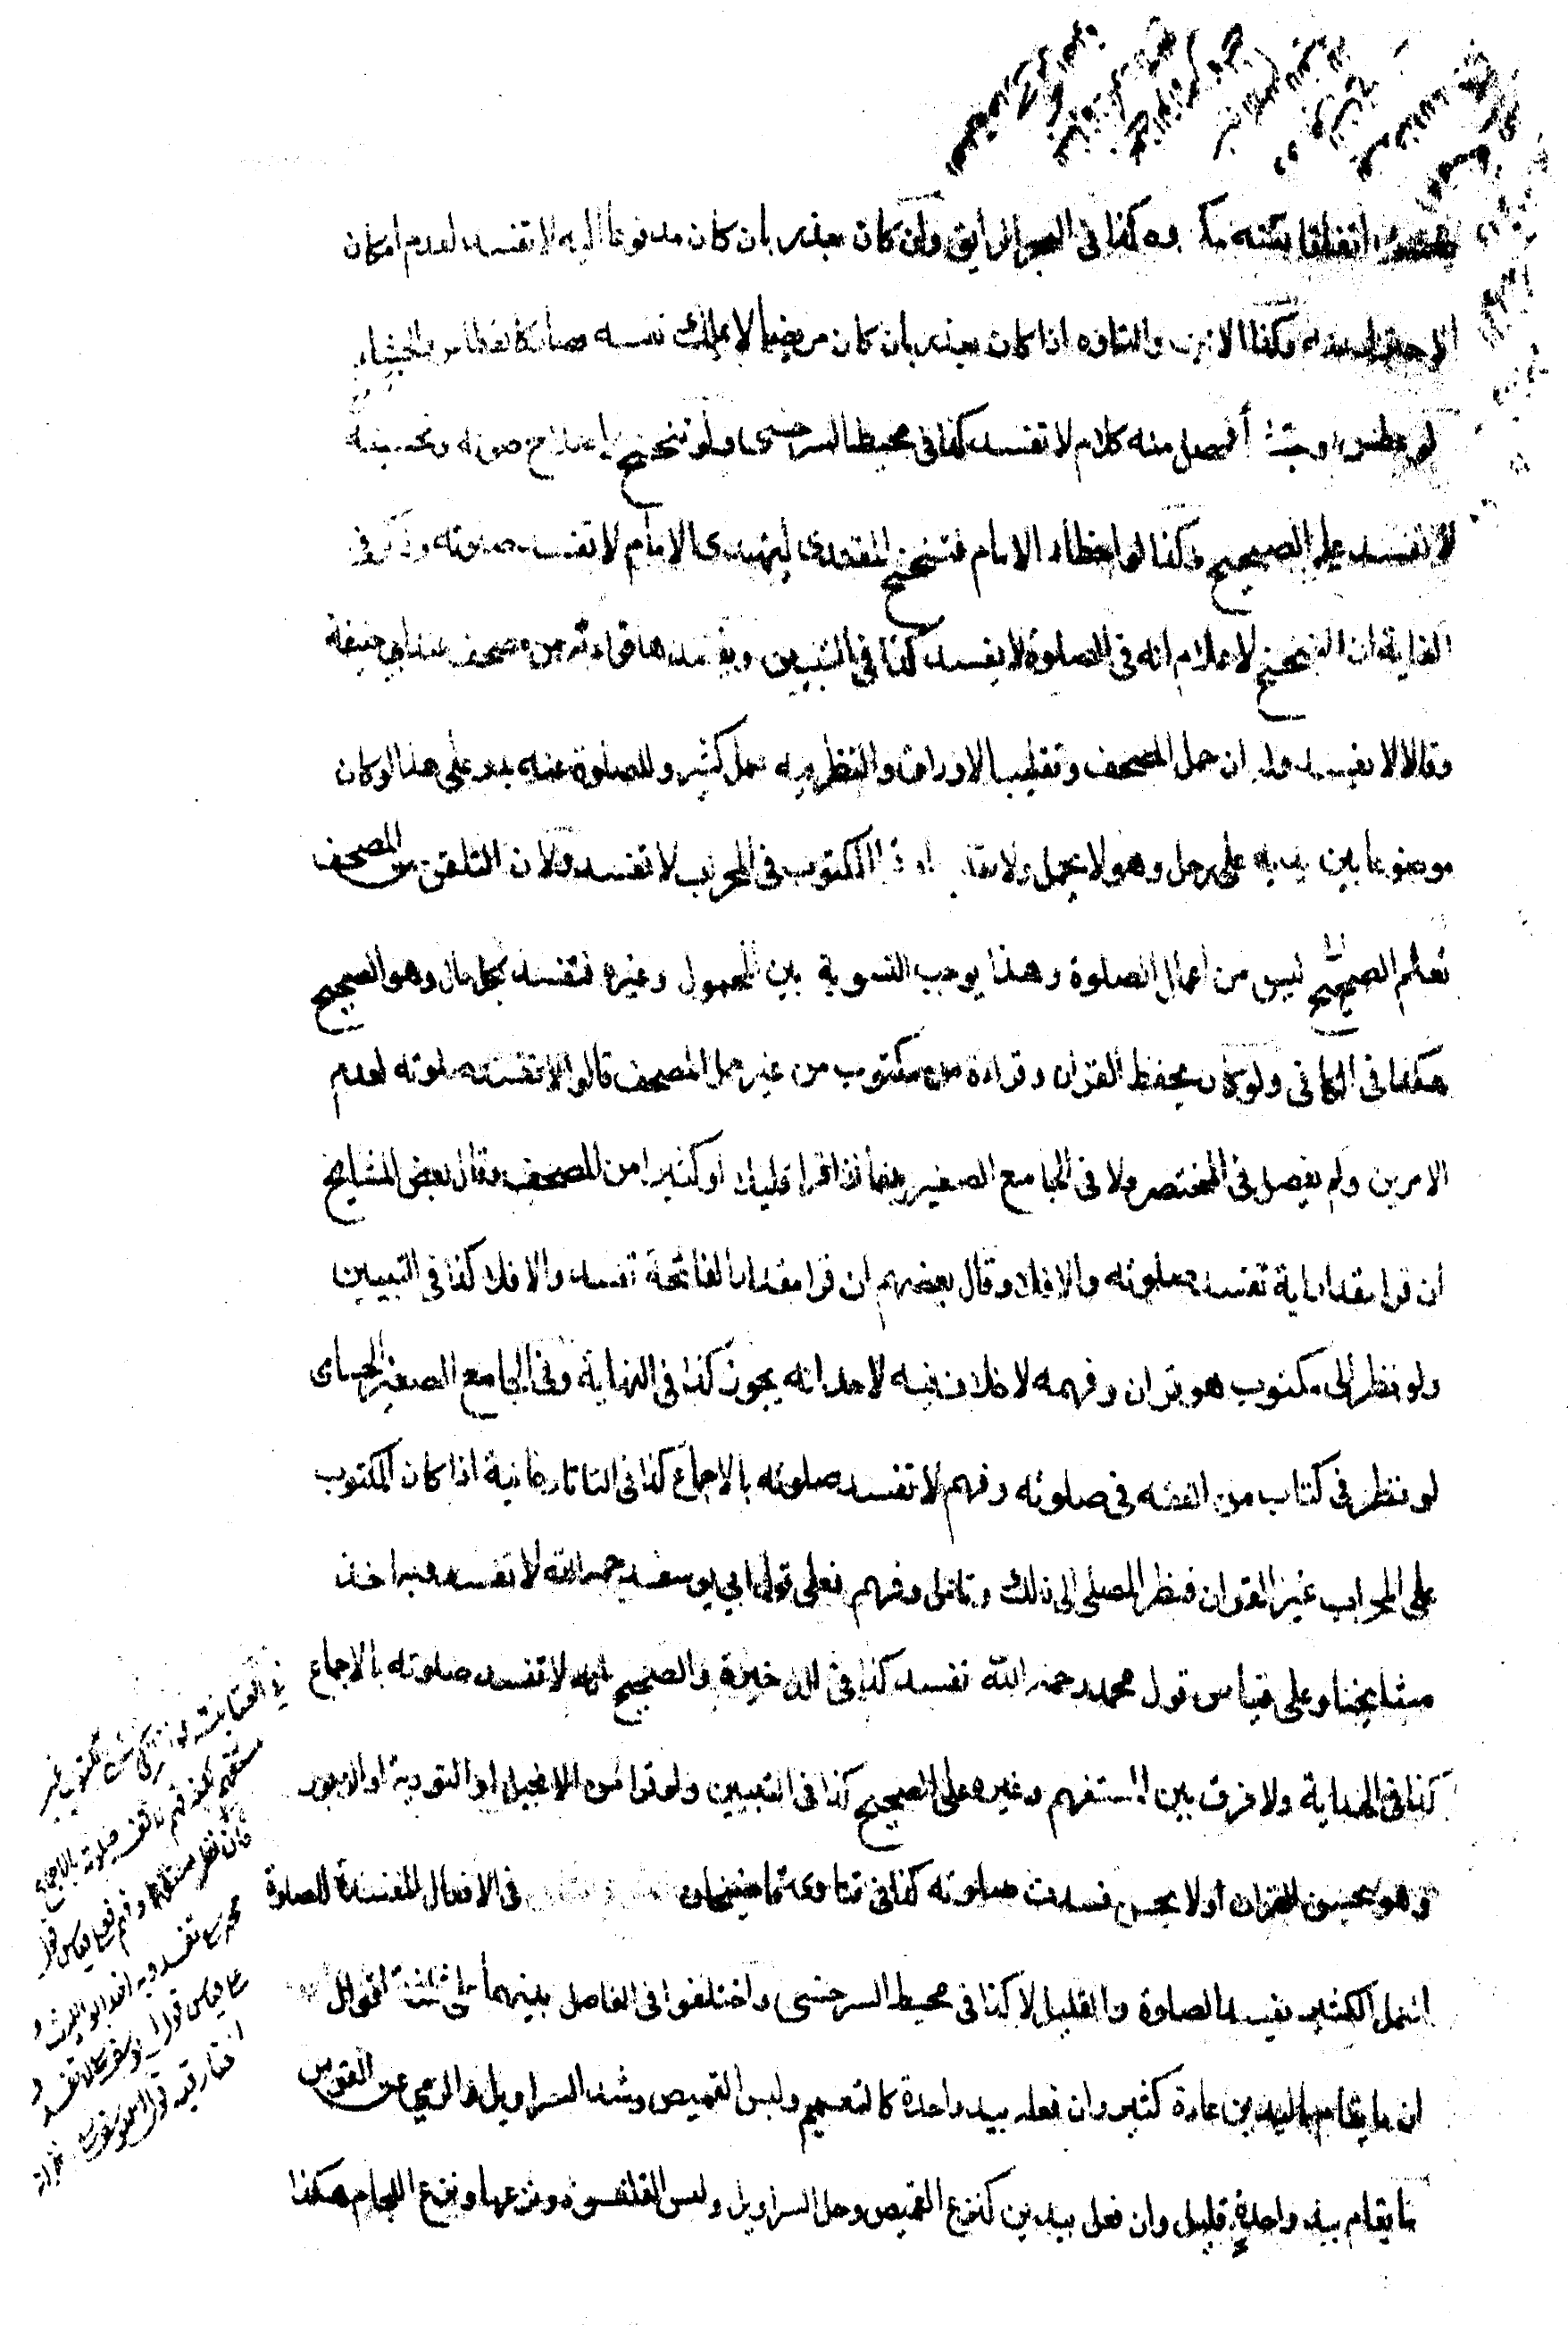 اتفاقا لكنه مكروه كذا في البحر الرايق وان كان بعذر بان كان مدفوعا اليه لا تفسد لعدم امكان
الاحتراز عنه وكذا الانين والتاوه اذا كان بعذر بان كان مريضا لا يملك نفسه فصار كالعطاس والجشاء
لو عطس او تجشأ فحصل منه كلام لا تفسد كذا في محيط السرخسي ولو تنحنح لاصلاح صوته وتحسينه
لا تفسد على الصحيح وكذا لو اخطاء الامام فتنحنح المقتدى ليهتدى الامام لا تفسد صلوته وذكر في
الغاية ان التنحنح لاعلام انه في الصلوة لا يفسد كذا في التبيين ويفسدها قراءته من مصحف عند ابي حنيفة
وقالا لا يفسد وله ان حمل المصحف وتقليب الاوراق والنظر فيه عمل كثير وللصلوة عنه بد وعلى هذا لو كان
موضوعا بين يديه على رحل وهو لا يحمل ولا يقلب المكتوب في المحراب لا تفسد ولان التلقن من المصحف
تعلم الصحيح ليس من اعمال الصلوة وهذا يوجب التسوية بين المحمول وغيره فتفسد بكل حال وهو الصحيح
هكذا في الكافي ولو كان يحفظ القران وقراءه من مكتوب من غير حمل المصحف قالوا لا تفسد صلوته لعدم
الامرين ولم يفصل في المختصر ولا في الجامع الصغير بينما اذا قرا قليلا او كثيرا من المصحف وقال بعض المشايخ
ان قرا مقدار اية تفسد صلوته والا فلا وقال بعضهم ان قرا مقدار الفاتحة تفسد والا فلا كذا في التبيين
ولو نظر الى مكتوب هو قران وفهمه لا خلاف فيه لاحد انه يجوز كذا في النهاية وفي الجامع الصغير الحسامى
لو نظر في كتاب من الفقه في صلوته وفهم لا تفسد صلوته بالاجماع كذا في التاتارخانية اذا كان المكتوب
على المحراب غير القران فنظر المصلى الى ذلك وتامل وفهم فعلى قول ابي يوسف رحمه الله لا تفسد وبه اخذ
مشايخنا وعلى قياس قول محمد رحمه الله تفسد كذا في الذخيرة والصحيح انه لا تفسد صلوته بالاجماع
كذا في الهداية ولا فرق بين المستفهم وغيره على الصحيح كذا في التبيين ولو قرا من الانجيل او التورية او الزبور
وهو يحسن القران او لا يحسن فسدت صلوته كذا في فتاوى قاضيخان في الافعال المفسدة للصلوة
العمل الكثير يفسد الصلوة والقليل لا كذا في محيط السرخسي واختلفوا في الفاصل بينهما على ثلثة اقوال
ان ما يقام باليدين عادة كثير وان فعله بيد واحدة كالتعمم ولبس القميص وشد السراويل والرمي عن القوس
ما يقام بيد واحدة قليل وان فعل بيدين كنزع القميص وحل السراويل ولبس القلنسوة ونزعها ونزع اللجام هكذا
مكتوب غير
مستفهم فهم لا تفسد صلوته بالاجماع
فان نظر مستفهما وفهم فعلى قياس قول
محمد تفسد وبه اخذ ابو الليث و
على قياس قول ابو يوسف لا تفسد و